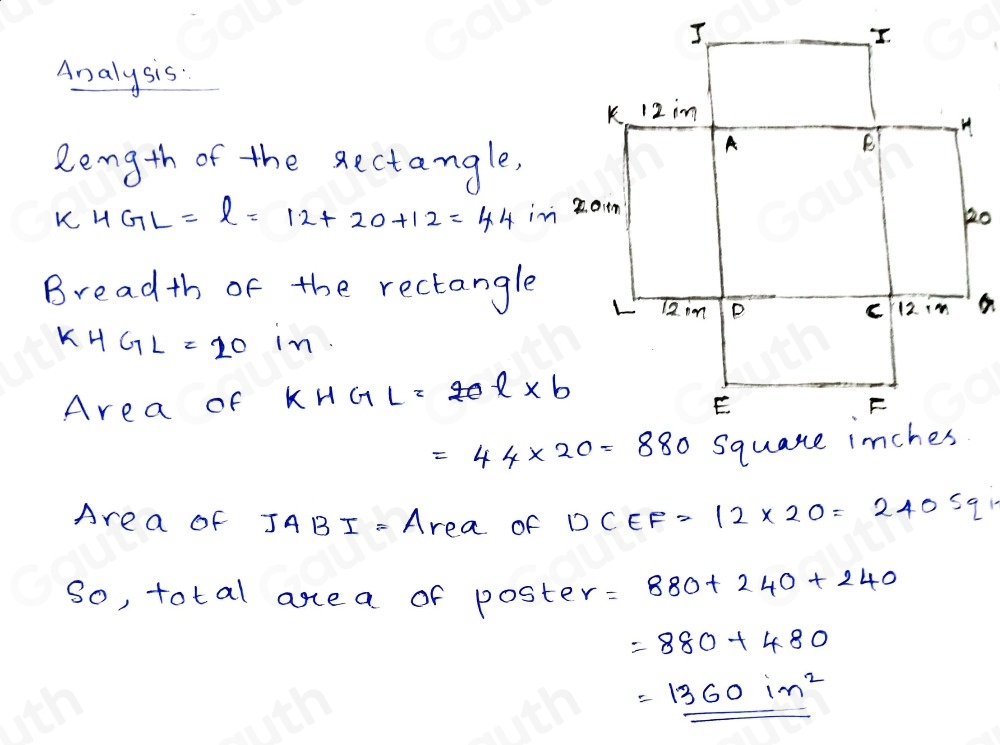 Analysis:
length of the rectangle,
KHGL = l = 12 + 20 + 12 = 44 in
Breadth of the rectangle
KHGL = 20 in.
Area of KHGL = l × b
= 44 × 20 = 880 square inches.
Area of JABI = Area of DCEF = 12 × 20 = 240 sqi
So, total area of poster = 880 + 240 + 240
= 880 + 480
= 1360 in²
J I
K 12 in H
A B
20 in 20
L 12 in D C 12 in G
E F
Gauth